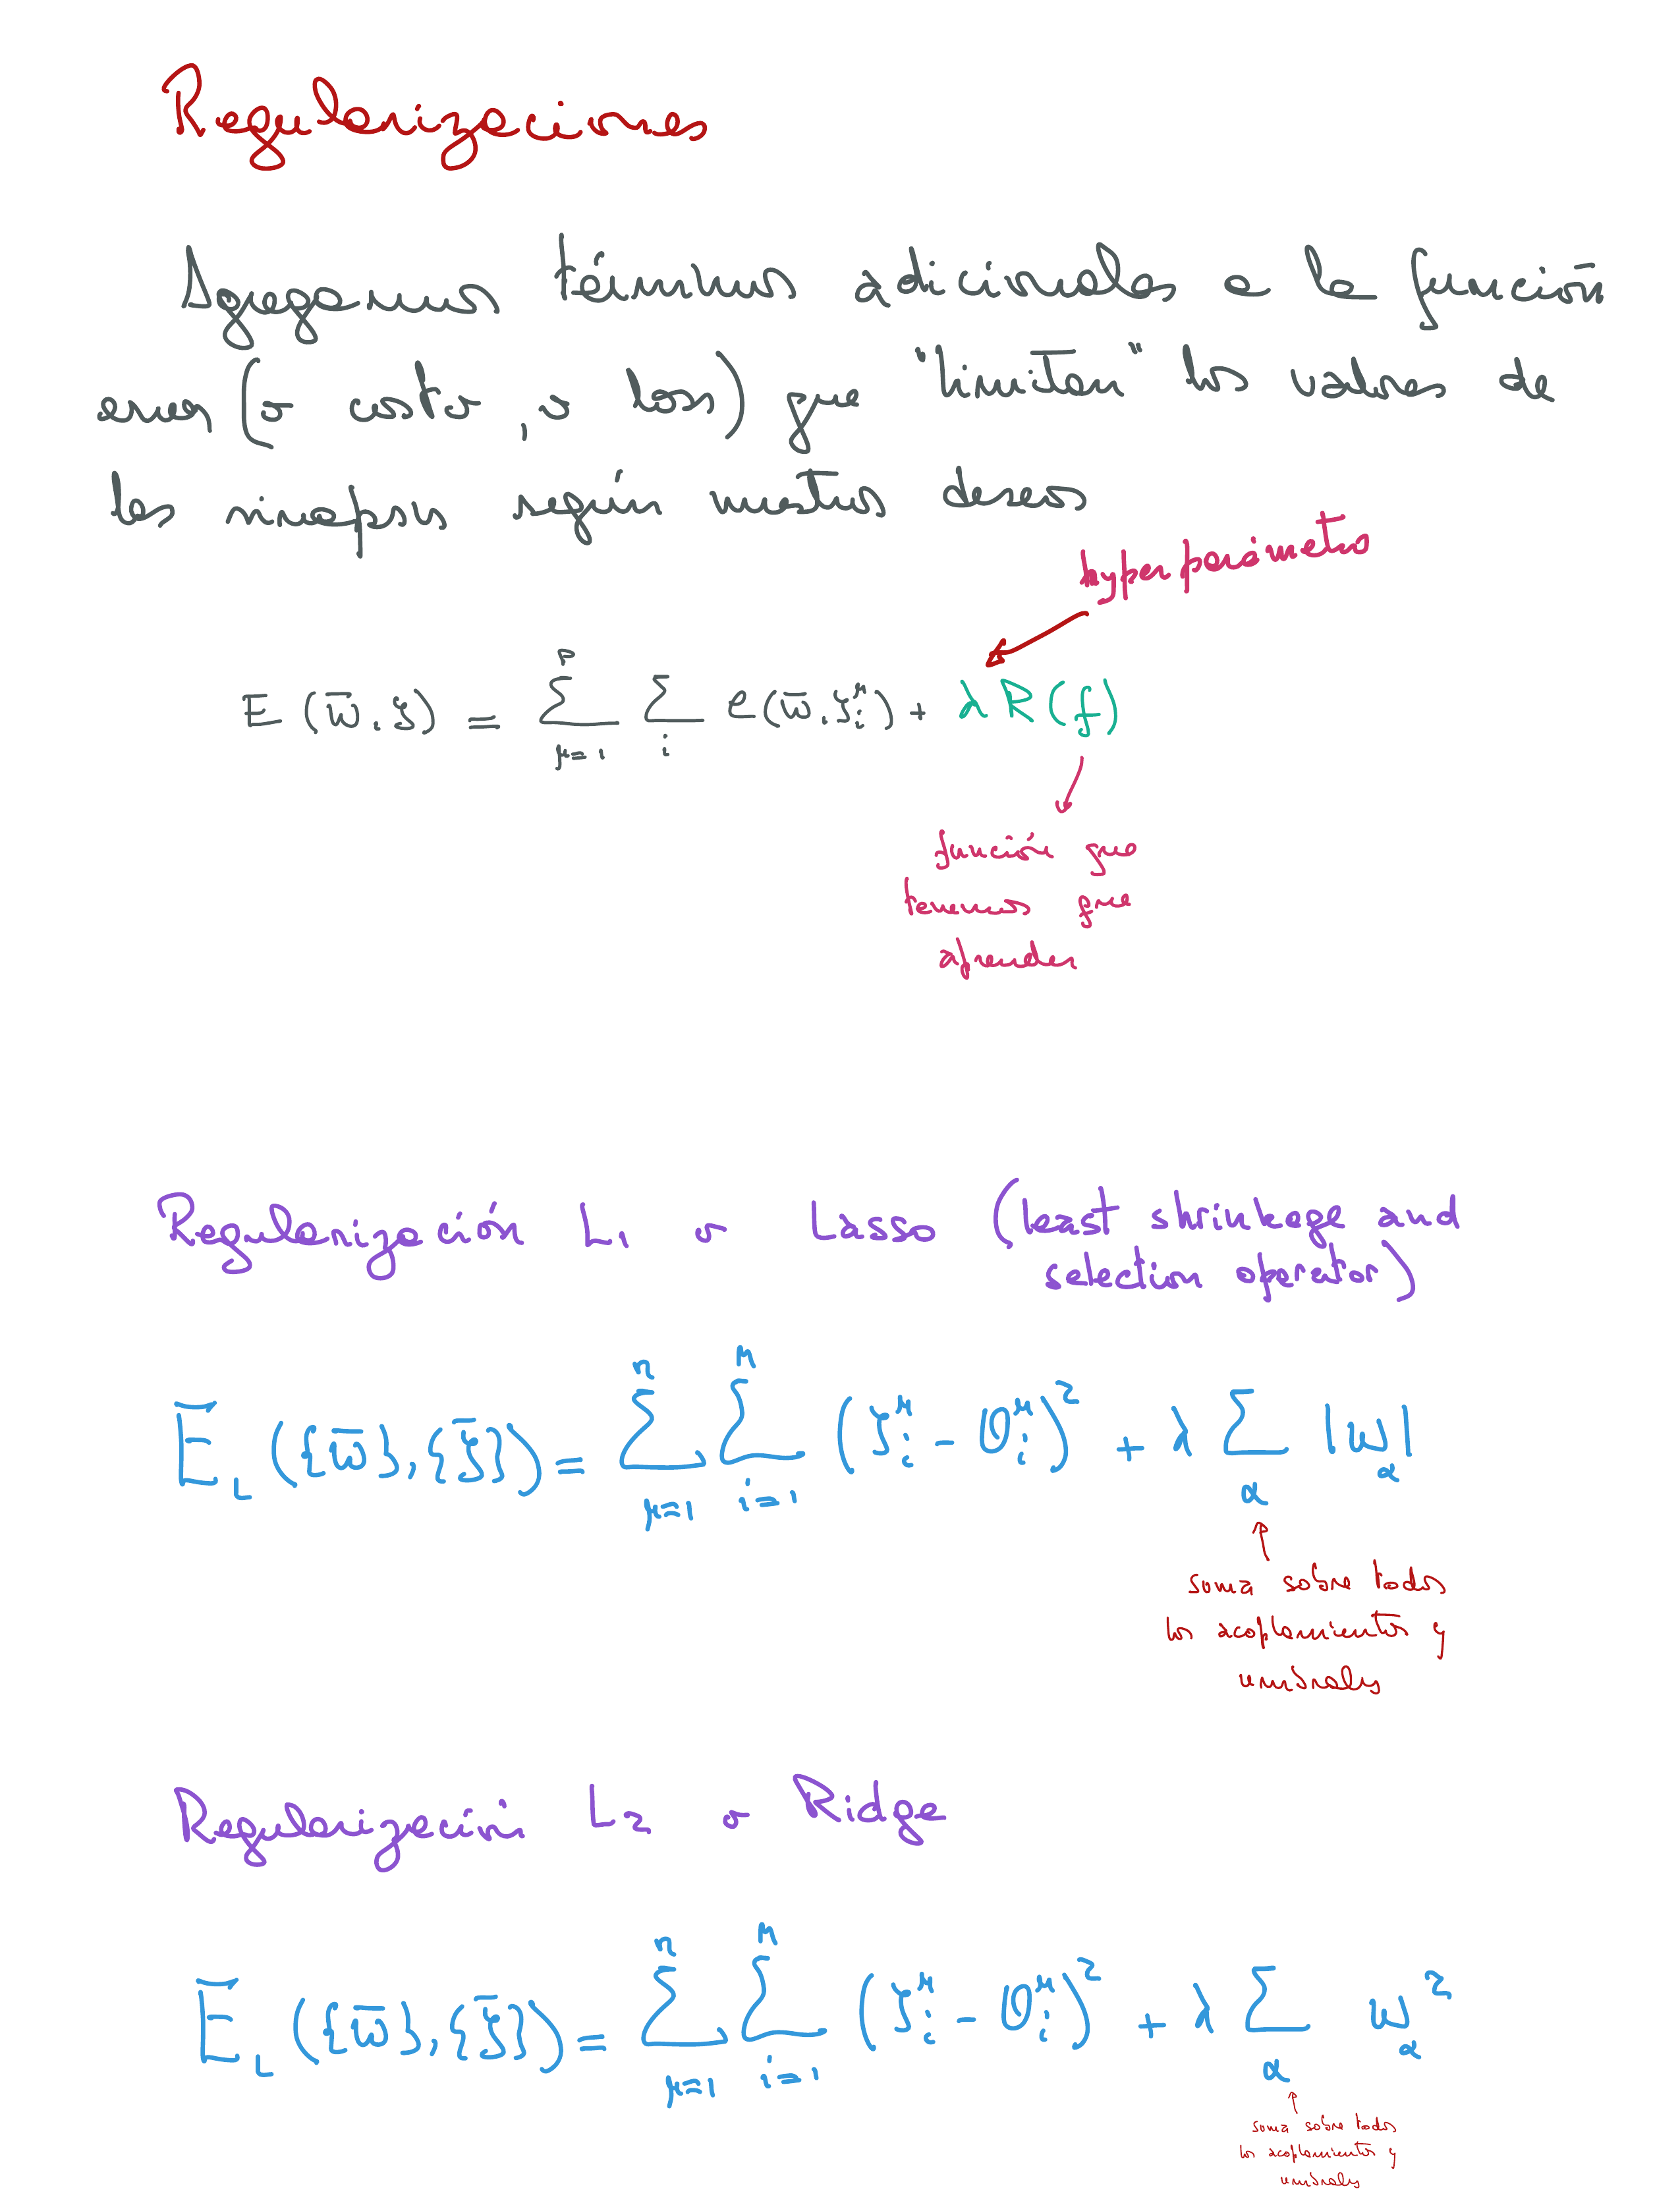 Regularizaciones
Agregamos términos adicionales a la función
error (o costo, o loss) que "limitan" los valores de
las sinapsis según nuestros deseos
hyperparámetro
E (w̄, ξ) = Σ_{μ=1}^{p} Σ_i e(w̄, ξ_i^μ) + λ R(f)
función que
tenemos que
aprender
Regularización L₁ o Lasso (least shrinkage and
selection operator)
E_L ({w̄}, {ξ̄}) = Σ_{μ=1}^{n} Σ_{i=1}^{M} (ζ_i^μ - O_i^μ)² + λ Σ_α |w_α|
suma sobre todos
los acoplamientos y
umbrales
Regularización L₂ o Ridge
E_L ({w̄}, {ξ̄}) = Σ_{μ=1}^{n} Σ_{i=1}^{M} (ζ_i^μ - O_i^μ)² + λ Σ_α w_α²
suma sobre todos
los acoplamientos y
umbrales